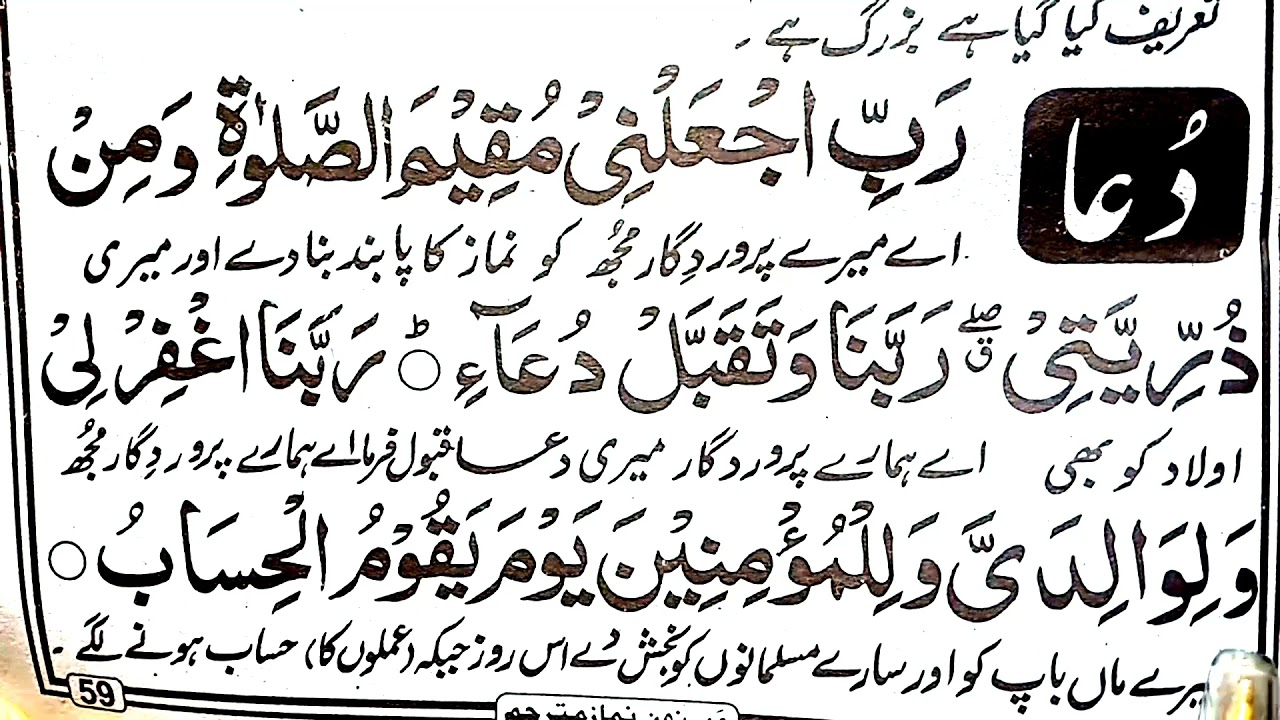 تعریف کیا گیا ہے بزرگ ہے ۔
دُعا
رَبِّ اجْعَلْنِیْ مُقِیْمَ الصَّلٰوۃِ وَمِنْ
اے میرے پروردِگار مجُھ کو نماز کا پابند بنا دے اور میری
ذُرِّیَّتِیْ ۖق رَبَّنَا وَتَقَبَّلْ دُعَآءِ ؕ○ رَبَّنَا اغْفِرْ لِیْ
اولاد کو بھی اے ہمارے پروردگار میری دعا قبول فرما اے ہمارے پروردِگار مجُھ
وَلِوَالِدَیَّ وَلِلْمُؤْمِنِیْنَ یَوْمَ یَقُوْمُ الْحِسَابُ ○
میرے ماں باپ کو اور سارے مسلمانوں کو بخش دے اس روز جبکہ (عملوں کا) حساب ہونے لگے ۔
59
نماز مترجم